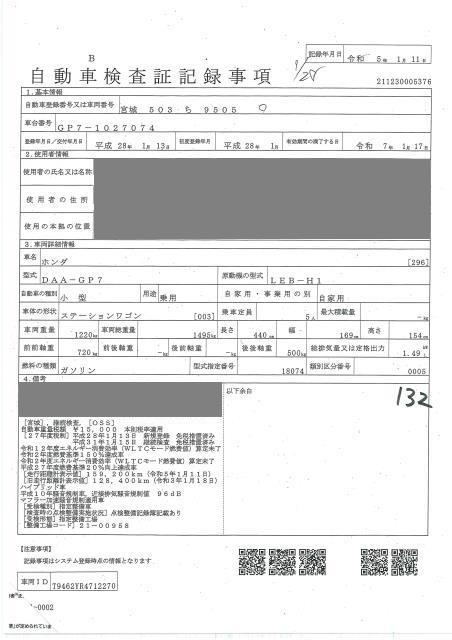 B
記録年月日 令和 5年 1月 11日
1/28
自動車検査証記録事項
211230005376
1.基本情報
自動車登録番号又は車両番号 宮城 503 ち 9505
車台番号 GP7-1027074
登録年月日/交付年月日 平成 28年 1月 13日 初度登録年月 平成 28年 1月 有効期間の満了する日 令和 7年 1月 17日
2.使用者情報
使用者の氏名又は名称
使用者の住所
使用の本拠の位置
3.車両詳細情報
車名 ホンダ [296]
型式 DAA-GP7 原動機の型式 LEB-H1
自動車の種別 小型 用途 乗用 自家用・事業用の別 自家用
車体の形状 ステーションワゴン [003] 乗車定員 5人 最大積載量 -kg
車両重量 1220kg 車両総重量 1495kg 長さ 440cm 幅 169cm 高さ 154cm
前前軸重 720kg 前後軸重 -kg 後前軸重 -kg 後後軸重 500kg 総排気量又は定格出力 1.49
燃料の種類 ガソリン 型式指定番号 18074 類別区分番号 0005
4.備考
以下余白
132
[宮城],継続検査,[OSS]
自動車重量税額 ¥15,000 本則税率適用
[27年度税制]平成28年1月13日 新規登録 免税措置済み
平成31年1月15日 継続検査 免税措置済み
令和12年度エネルギー消費効率(WLTCモード燃費値)算定未了
令和2年度燃費基準150%達成車
令和2年度エネルギー消費効率(WLTCモード燃費値)算定未了
平成27年度燃費基準20%向上達成車
[走行距離計表示値]159,200km(令和5年1月11日)
[旧走行距離計表示値]128,400km(令和3年1月18日)
ハイブリッド車
平成10年騒音規制車,近接排気騒音規制値 96dB
マフラー加速騒音規制適用車
[受検種別]指定整備車
[検査時の点検整備実施状況]点検整備記録簿記載あり
[受検形態]指定整備工場
[整備工場コード]21-00958
【注意事項】
記録事項はシステム登録時点の情報となります
車両ID T9462YR4712270
-0002
票)が定められていま